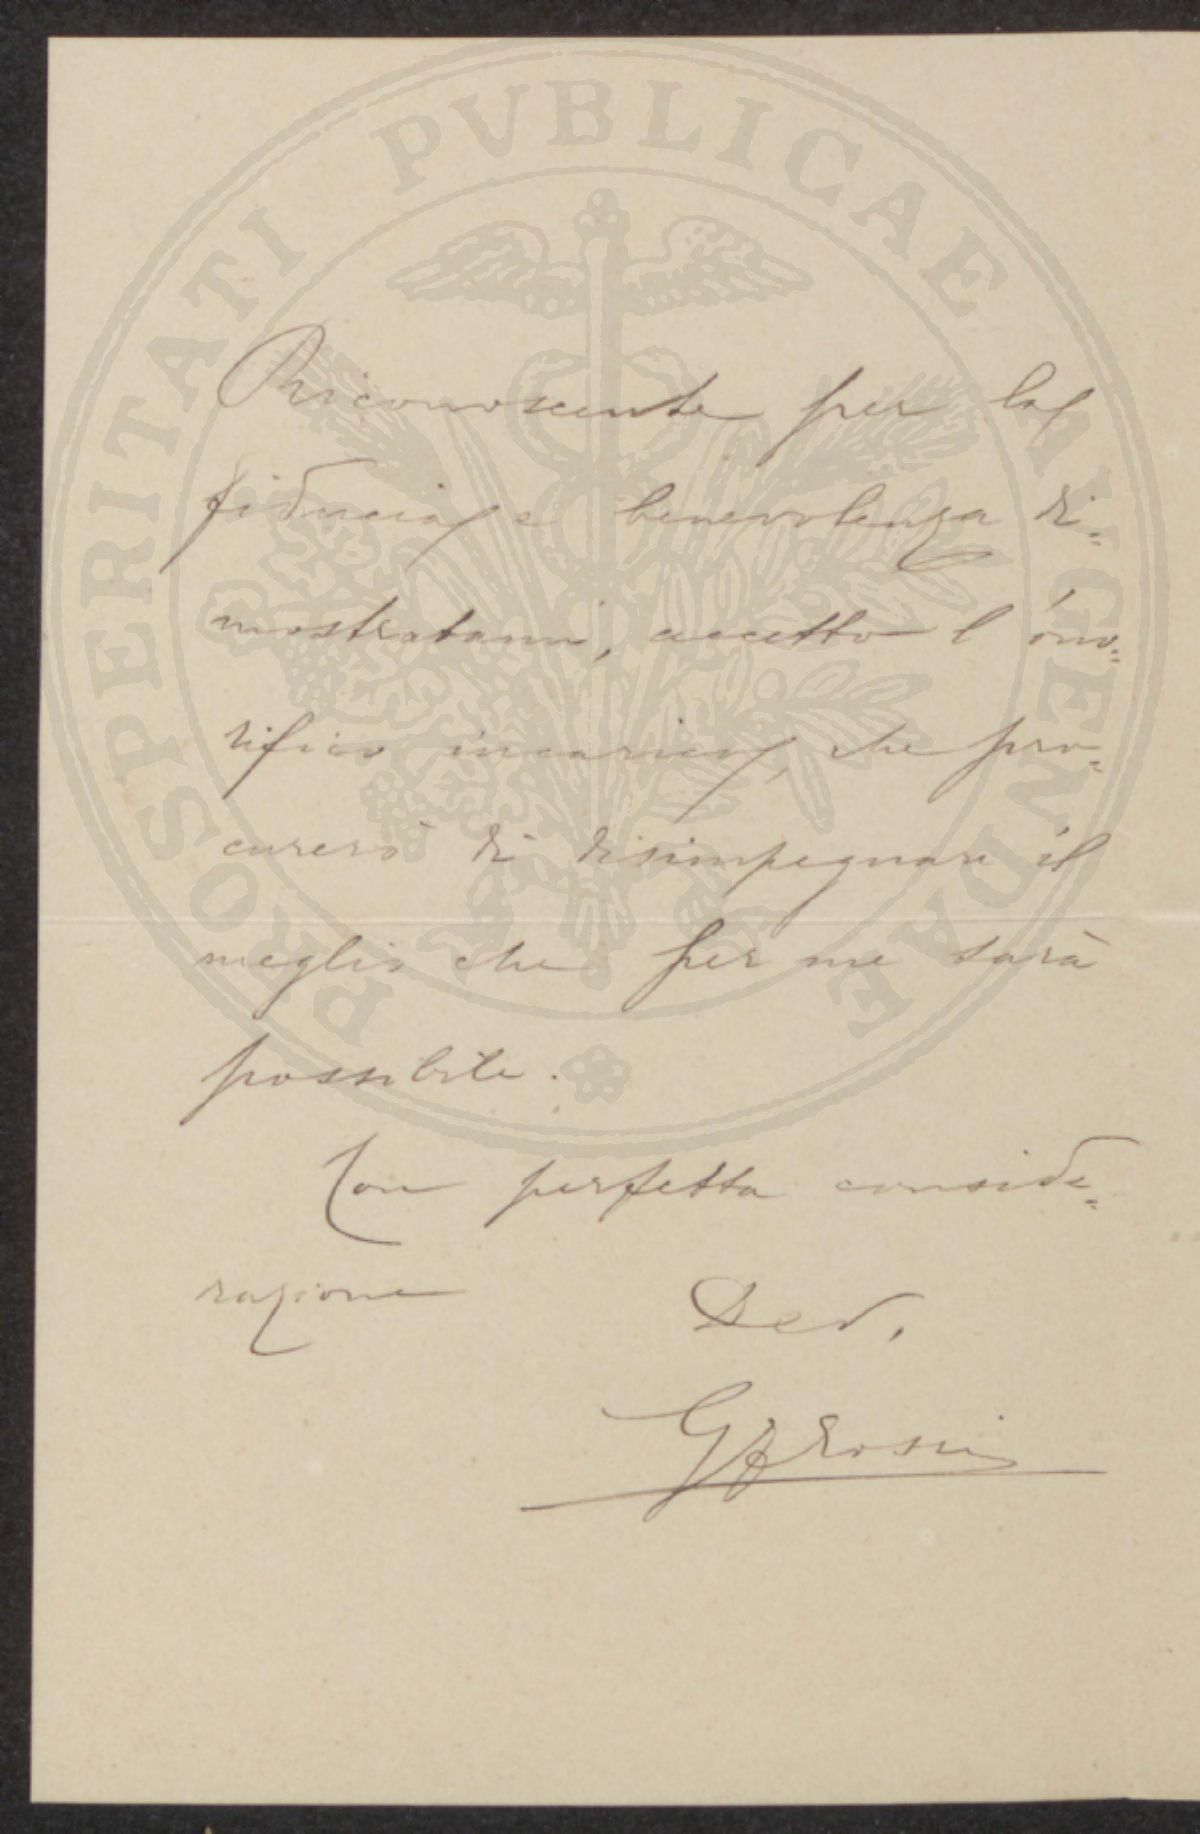 PROSPERITATI PVBLICAE AVGENDAE
Riconoscente per la
fiducia e benevolenza di=
mostratami, accetto l'ono=
rifico incarico, che pro=
curerò di disimpegnare il
meglio che per me sarà
possibile.
Con perfetta conside=
razione
Dev.
Rossi